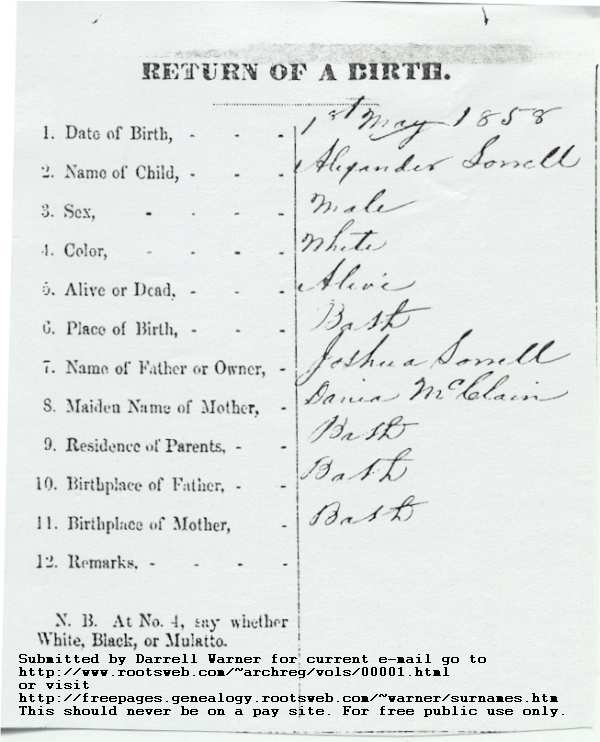 RETURN OF A BIRTH.
1. Date of Birth, - - - 1st May 1858
2. Name of Child, - - - Alexander Sorrell
3. Sex, - - - - Male
4. Color, - - - - White
5. Alive or Dead, - - - Alive
6. Place of Birth, - - - Bath
7. Name of Father or Owner, - Joshua Sorrell
8. Maiden Name of Mother, - McClain
9. Residence of Parents, - - Bath
10. Birthplace of Father, - - Bath
11. Birthplace of Mother, - Bath
12. Remarks, - - - -
N. B. At No. 4, say whether
White, Black, or Mulatto.
Submitted by Darrell Warner for current e-mail go to
http://www.rootsweb.com/~archreg/vols/00001.html
or visit
http://freepages.genealogy.rootsweb.com/~warner/surnames.htm
This should never be on a pay site. For free public use only.